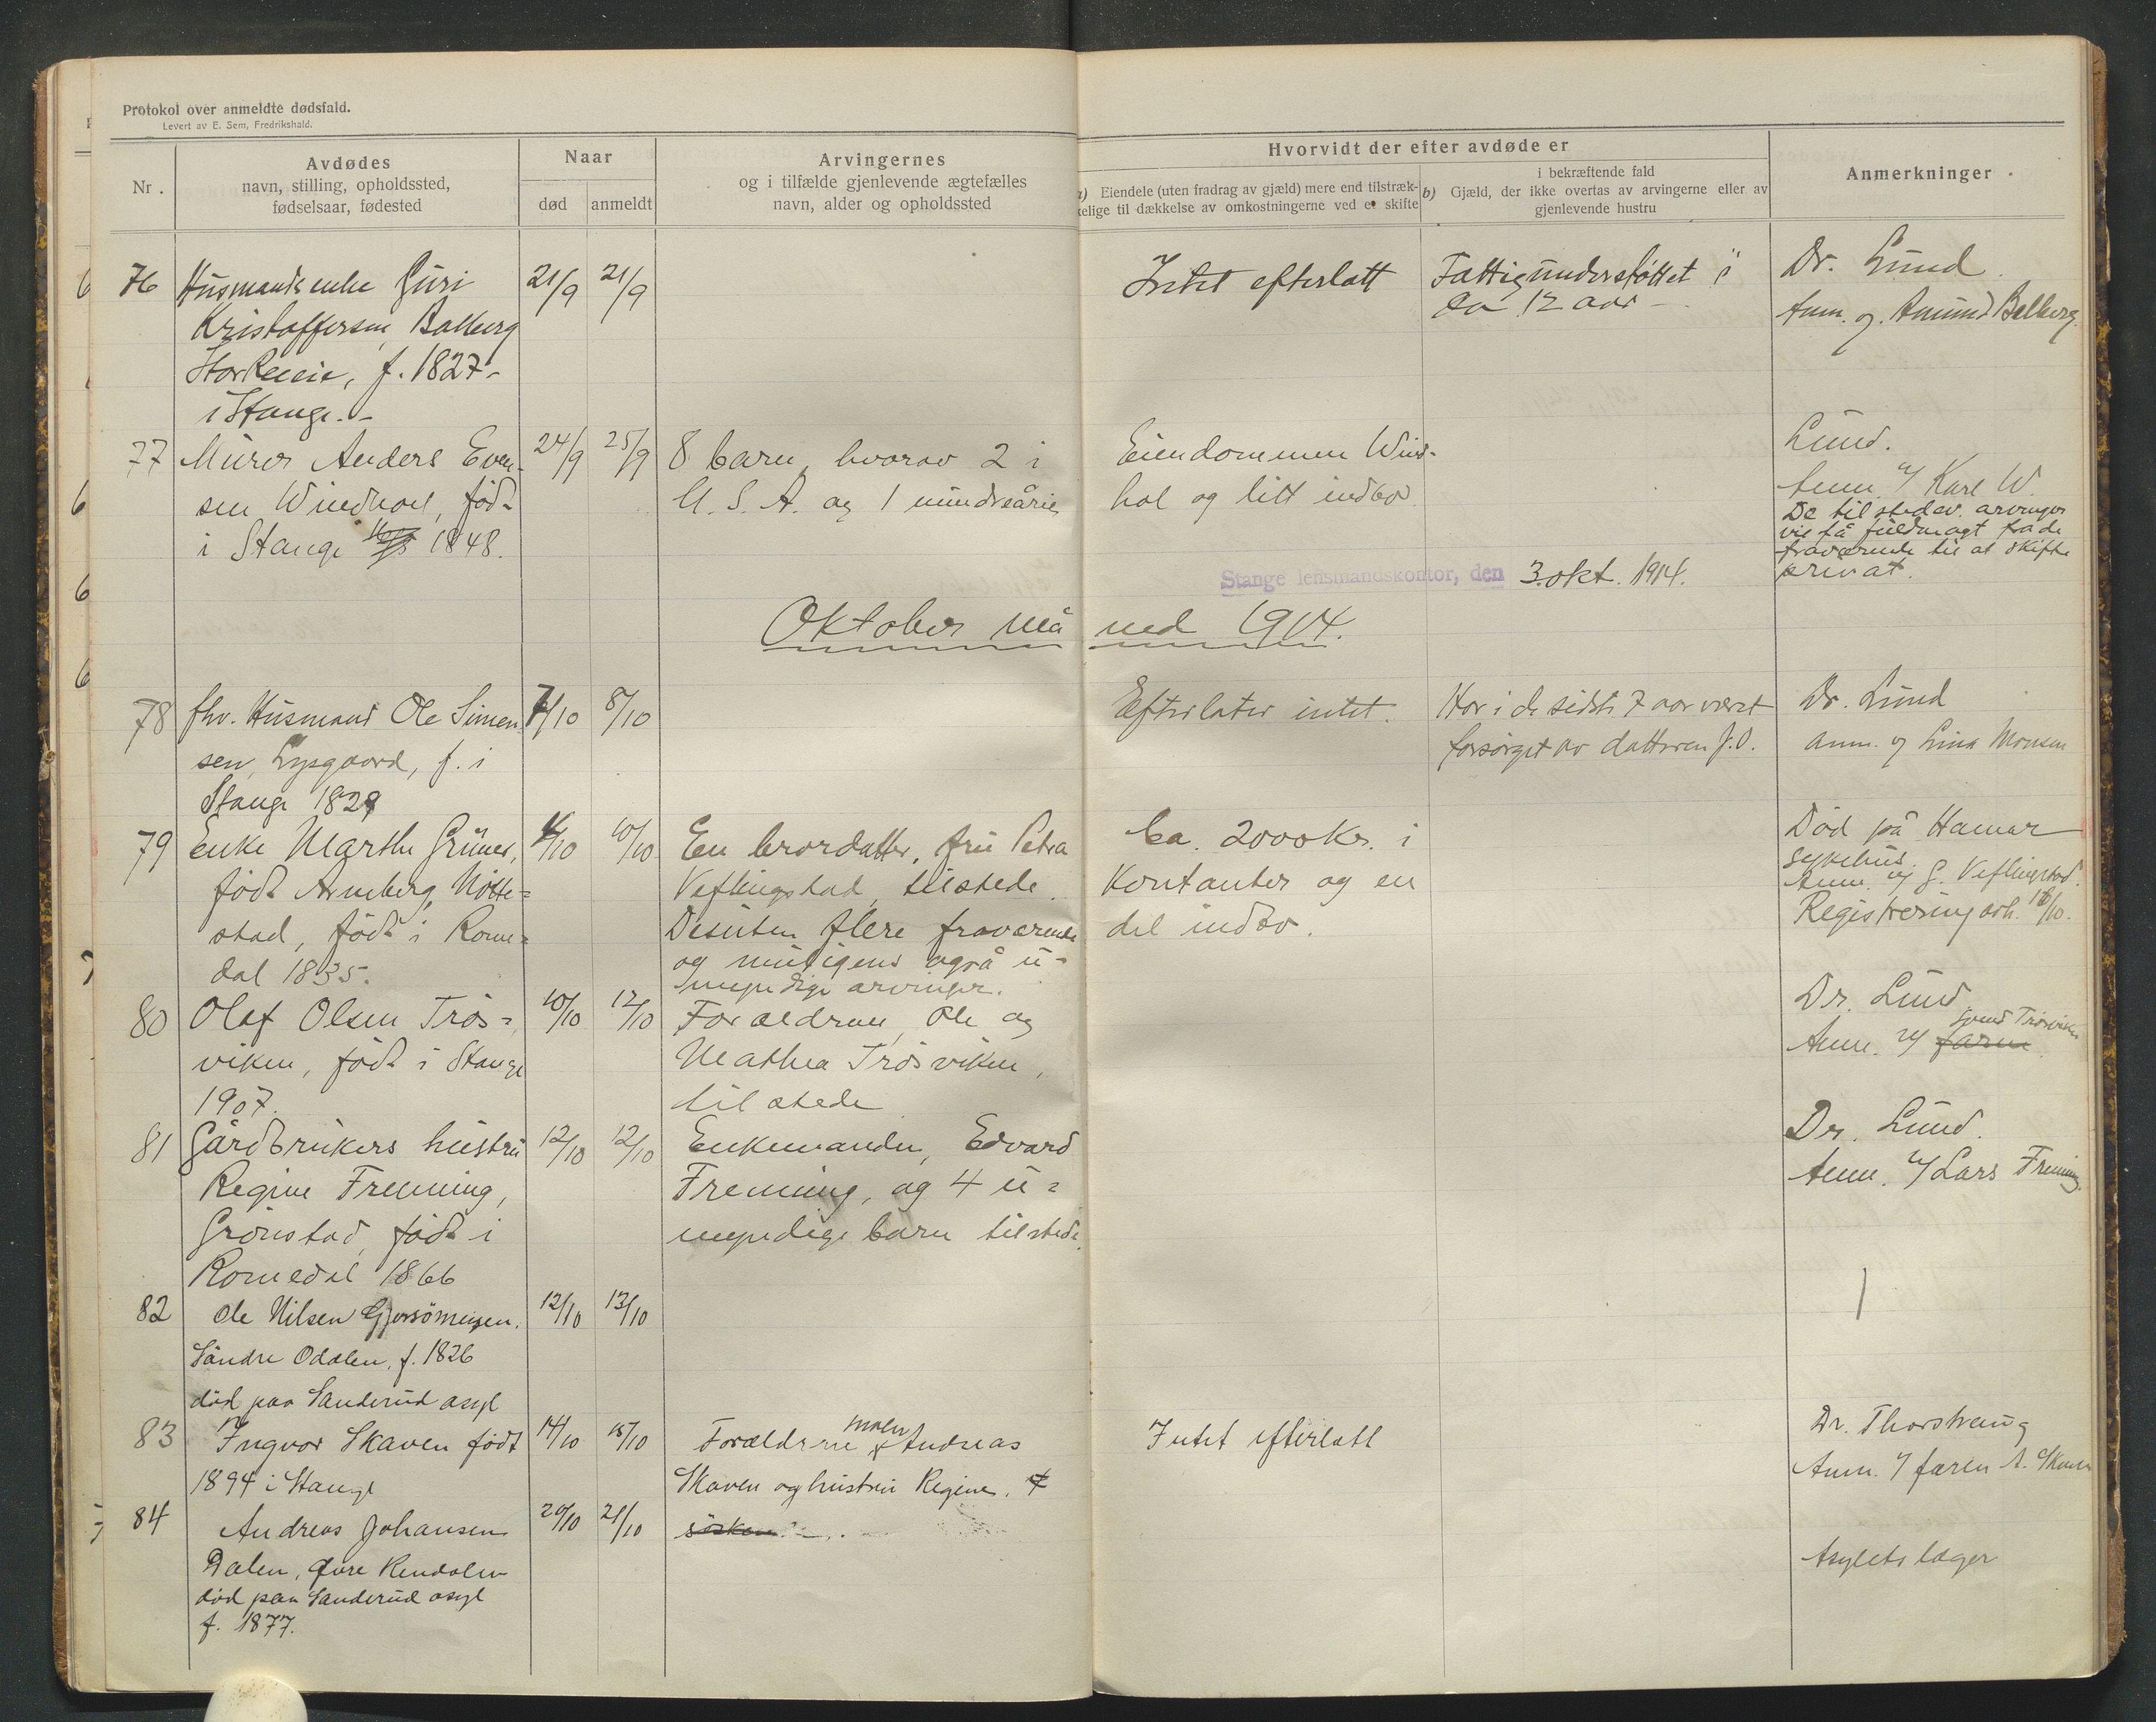 Protokol over anmeldte dødsfald.
Levert av E. Sem, Fredrikshald.
Nr.
Avdødes
navn, stilling, opholdssted,
fødselsaar, fødested
Naar
død
anmeldt
Arvingernes
og i tilfælde gjenlevende ægtefælles
navn, alder og opholdssted
Hvorvidt der efter avdøde er
a) Eiendele (uten fradrag av gjæld) mere end tilstræk-
kelige til dækkelse av omkostningerne ved et skifte
i bekræftende fald
b) Gjæld, der ikke overtas av arvingerne eller av
gjenlevende hustru
Anmerkninger
76
Husmandsenke Guri
Kristoffersen, Balberg
f. 1827-
i Stange.-
21/9
21/9
Intet efterlatt
Fattigunderstøttet i
ca 12 aar -
Dr. Lund
Anm. og. Amund Balberg.
77
Murer Anders Even-
sen Windhol, født
i Stange 1848.
24/9
25/9
8 barn, hvorav 2 i
U. S. A. og 1 mindreårig
Eiendommen Wind-
hol og litt indbo
Lund.
Anm. af Karl W.
De tilstedev. arvinger
vil få fuldmagt fra de
fraværende til at skifte
privat.
Stange lensmandskontor, den 3. okt. 1914.
Oktober måned 1914.
78
fhv. Husmand Ole Simen-
sen, Lysgaard, f. i
Stange 1829
7/10
8/10
Efterlater intet.
Har i de sidste 7 aar været
forsørget av datteren J.O.
Dr. Lund
anm. af Lina Monsen
79
Enke Marthe Grüner,
født Arneberg, Nøtte-
stad, født i Rome-
dal 1835.
/10
10/10
En brordatter, fru Petra
Veflingstad, tilstede.
Desuten flere fraværende
og muligens også u-
myndige arvinger.
Ca. 2000 Kr. i
Kontanter og en
del indbo.
Død på Hamar
sykehus.
Anm. af G. Veflingstad.
Registrering avh. 18/10.
80
Olaf Olsen Trøs-
viken, født i Stange
1907.
10/10
12/10
Forældrene, Ole og
Mathea Trøsviken,
tilstede
Dr. Lund
Svend Trøsviken
Anm. af faren
81
Gårdbrukers hustru
Regine Frenning,
Grönstad, født i
Romedal 1866
12/10
12/10
Enkemanden, Edvard
Frenning, og 4 u-
myndige barn tilstede.
Dr. Lund.
Anm. af Lars Frenning.
82
Ole Nilsen
Söndre Odalen, f. 1826
död paa Sanderud asyl
12/10
13/10
83
Ingvar Skaven født
1894 i Stange
14/10
15/10
maler
Forældrene Andreas
Skaven og hustru Regine.
søsken
Intet efterlatt
Dr. Thorstveing
Anm. af faren A. Skaven
84
Andreas Johansen
Dalen, Øvre Rendalen
död paa Sanderud asyl
f. 1877.
20/10
21/10
Asylets læger